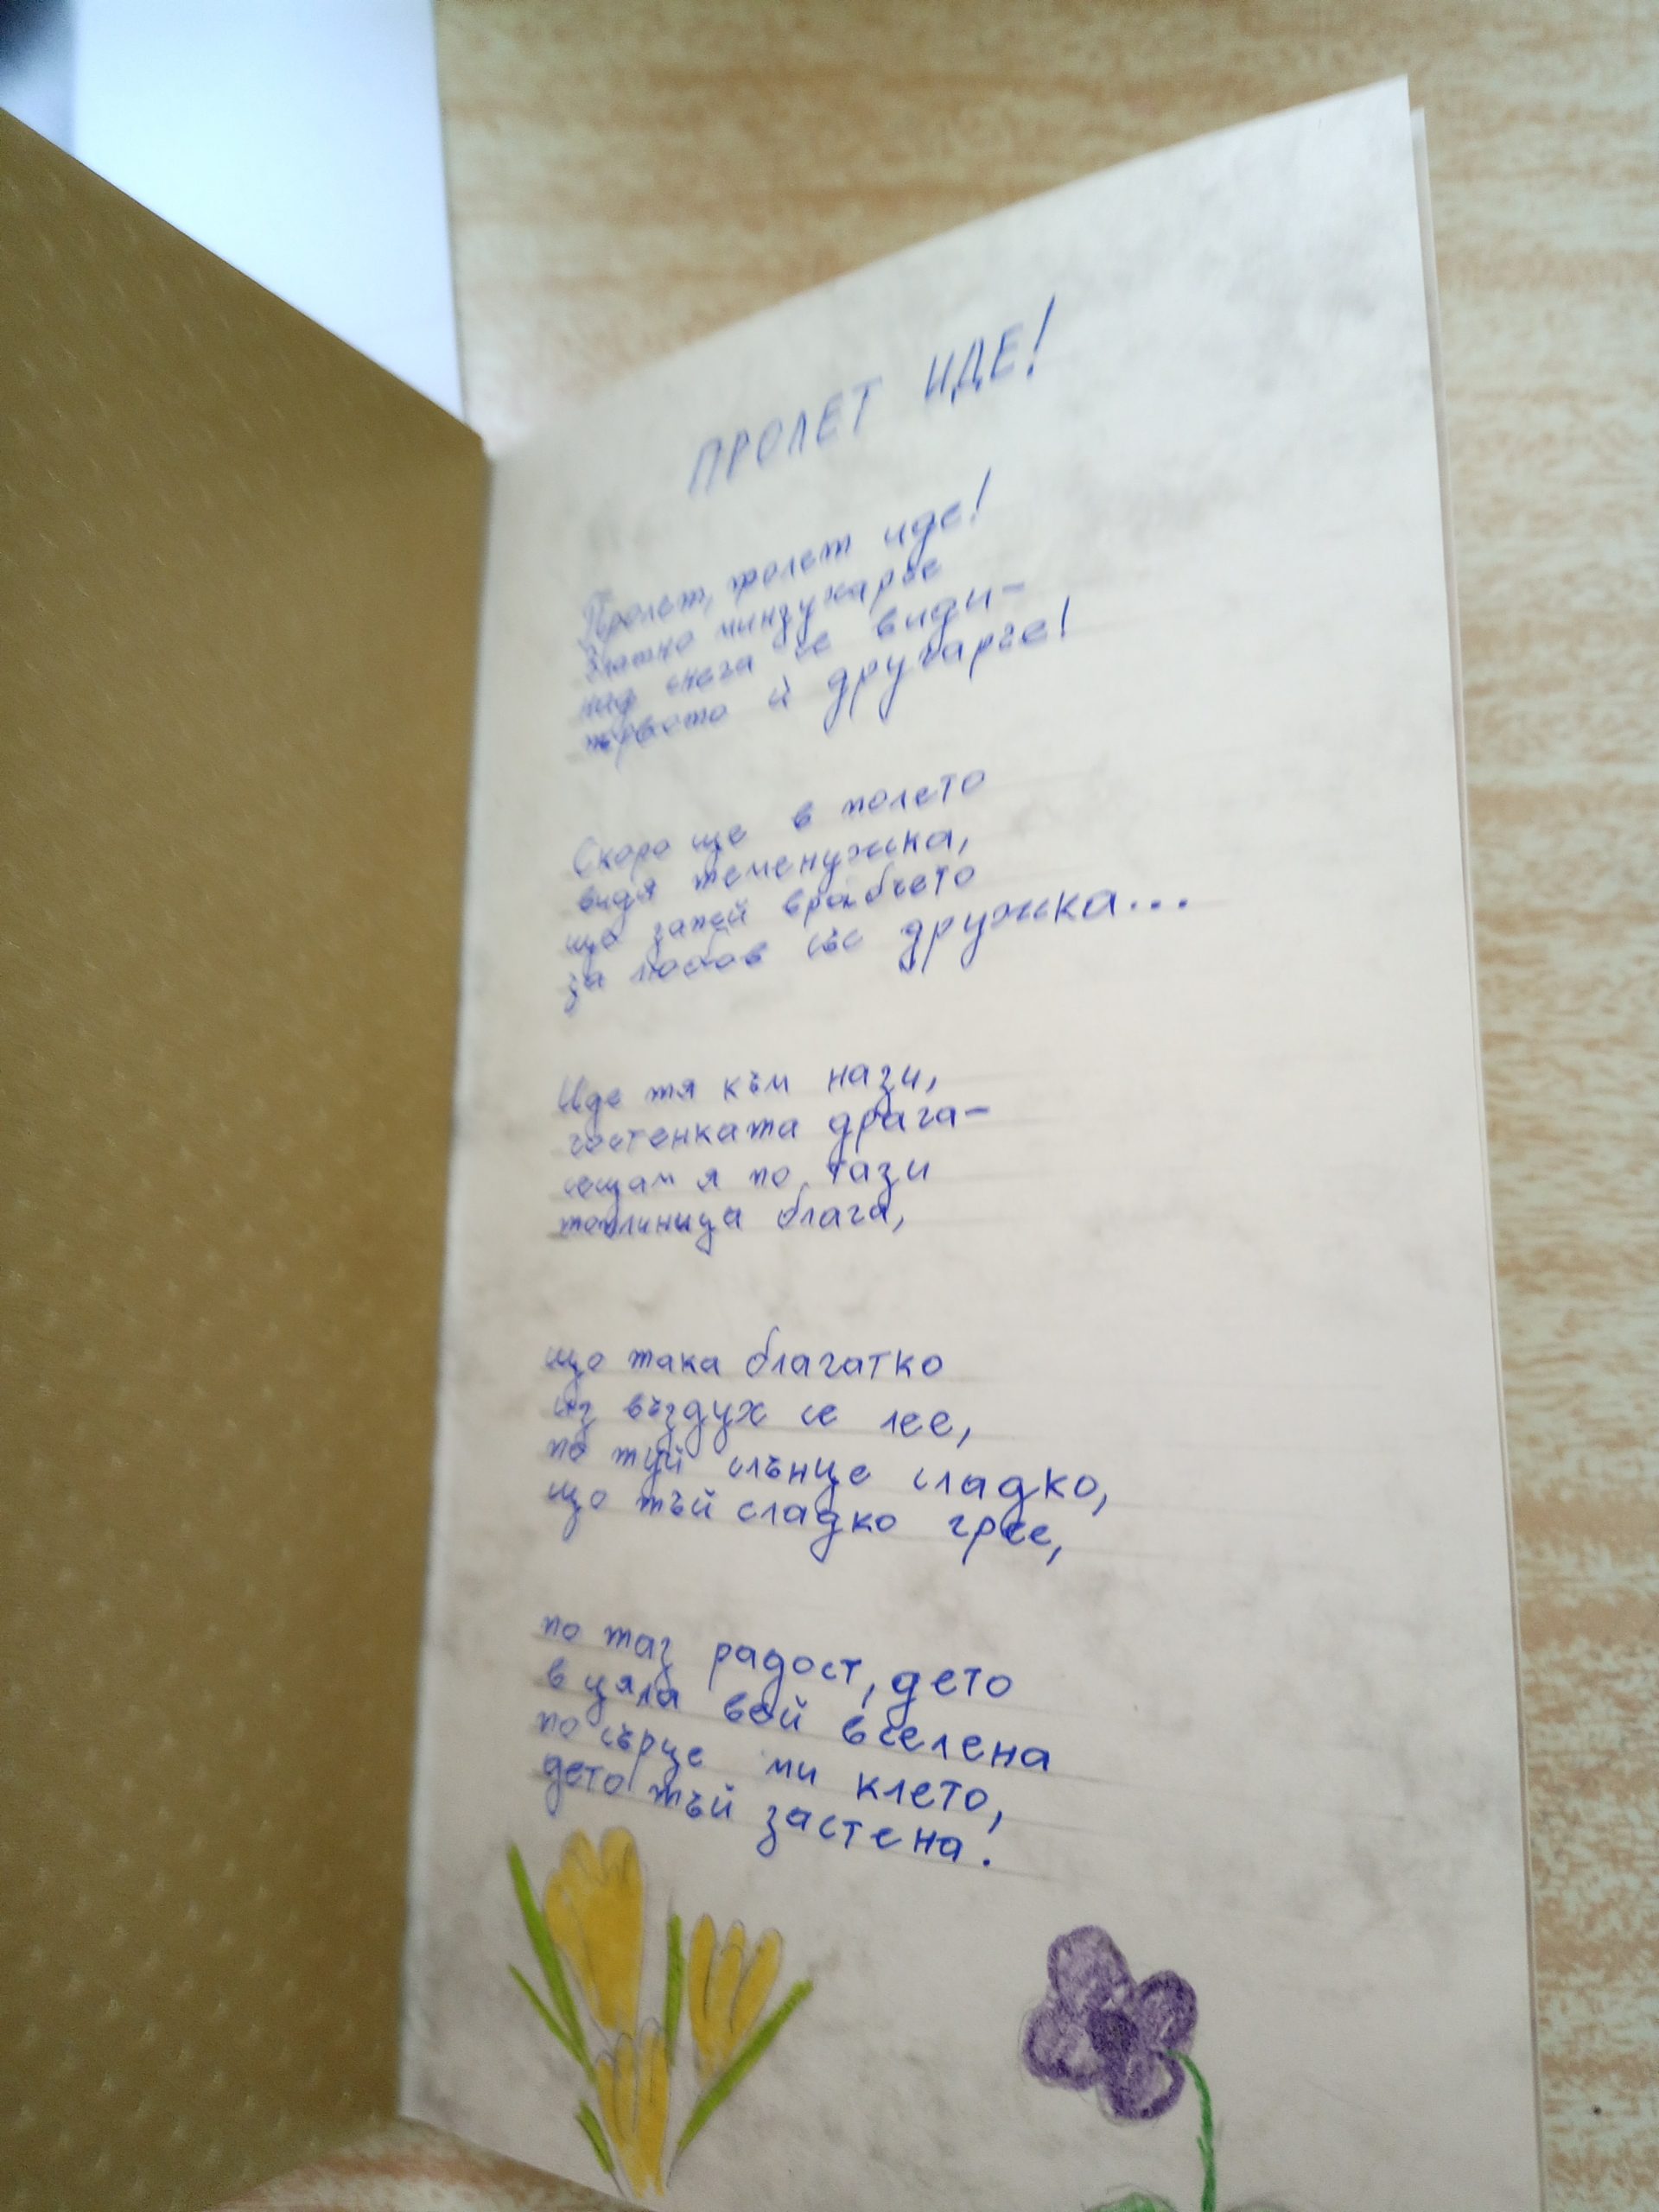 ПРОЛЕТ ИДЕ!
Пролет, пролет иде!
Златно минзухарче
под снега се види-
първото ѝ другарче!
Скоро ще в полето
видя теменужка,
що запей врабчето
за любов със дружка...
Иде тя към нази,
гостенката драга-
сещам я по тази
топлиница блага,
що така благатко
из въздух се лее,
по туй слънце сладко,
що тъй сладко грее,
по таз радост, дето
в цяла вей вселена
по сърце ми клето,
дето тъй застена.